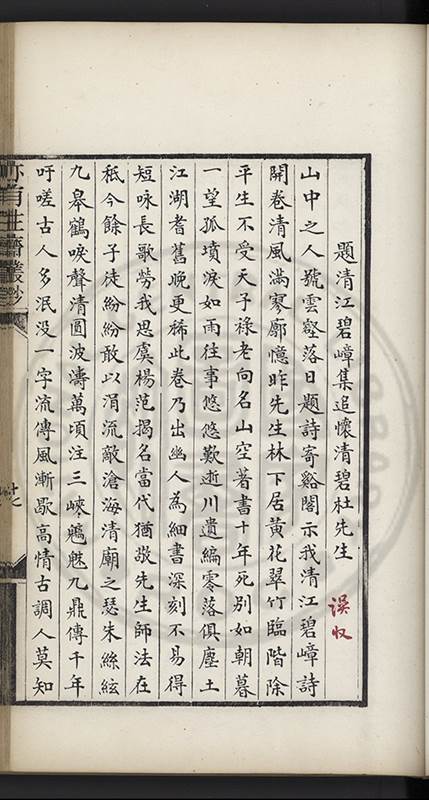 題清江碧嶂集追懷清碧杜先生
误收
山中之人號雲壑落日題詩寄谿閣示我清江碧嶂詩
開卷清風滿寥廓憶昨先生林下居黄花翠竹臨階除
平生不受天子祿老向名山空著書十年死别如朝暮
一望孤墳淚如雨往事悠悠歎逝川遺編零落俱塵土
江湖耆舊晚更稀此卷乃出幽人為細書深刻不易得
短咏長歌勞我思虞楊范揭名當代猶敬先生師法在
秖今餘子徒紛紛敢以涓流敵滄海清廟之瑟朱絲絃
九皋鶴唳聲清圓波濤萬頃注三峽魑魅九鼎傳千年
吁嗟古人多泯没一字流傳風漸歇高情古調人莫知
亦有生齋叢鈔